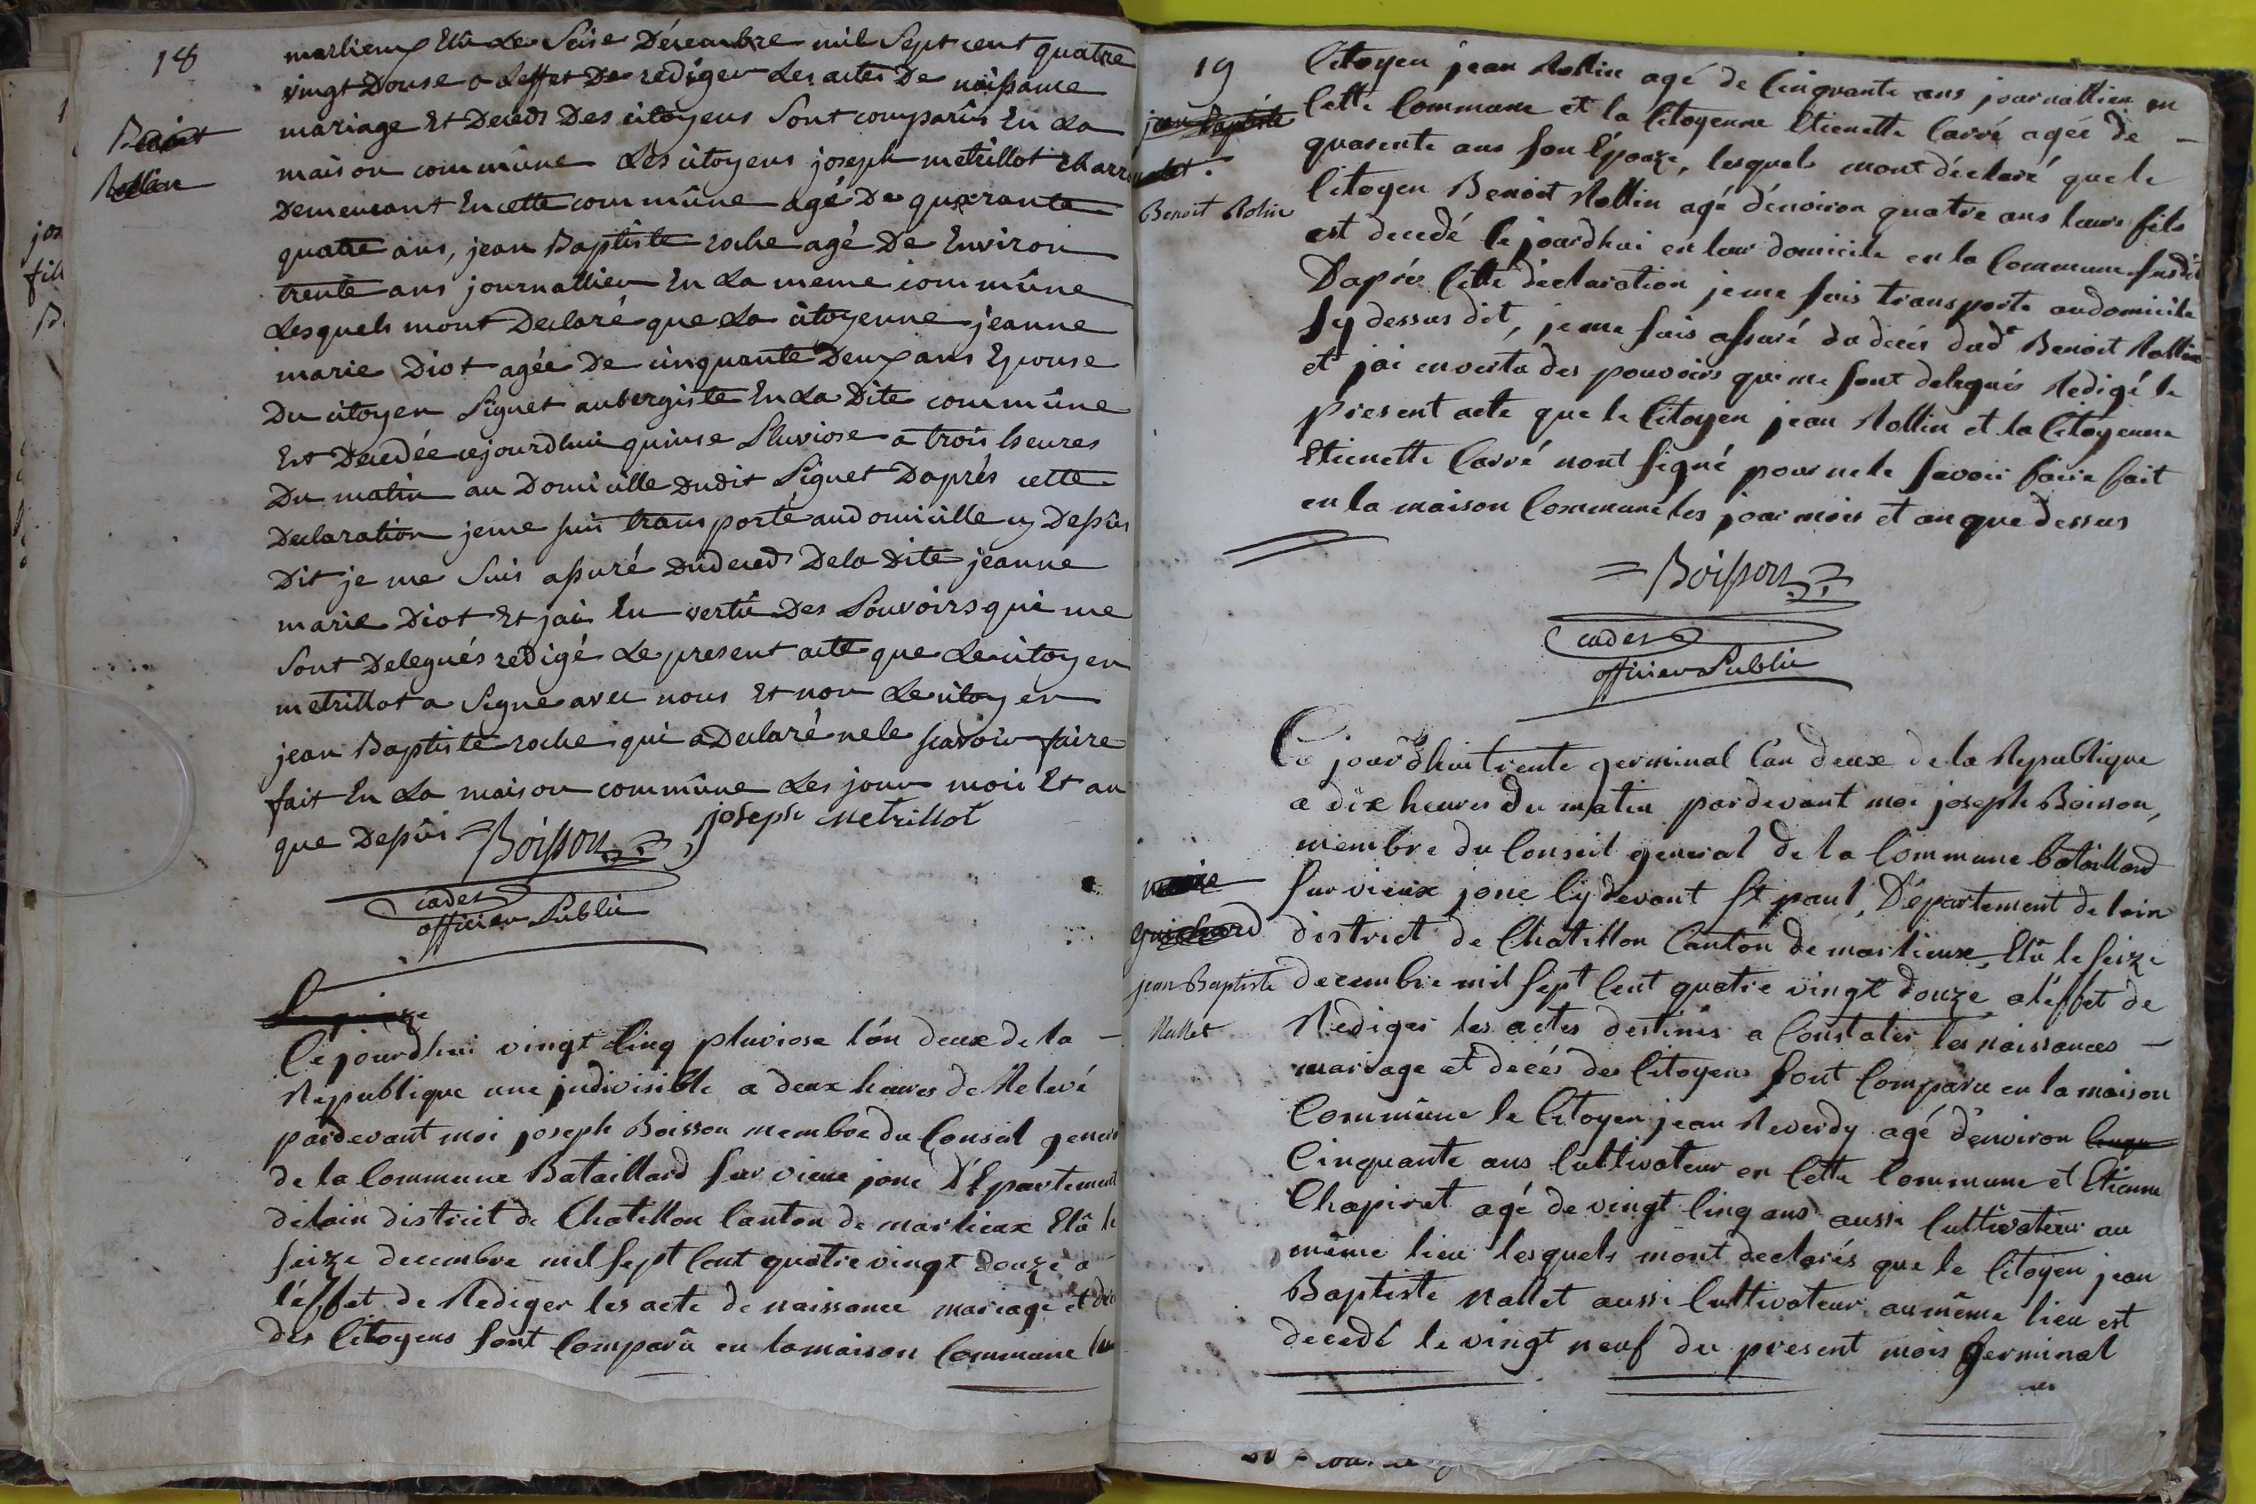 18
marlieux Elû Le Seise Décembre mil Sept cent quatre
vingt Douse a Leffet De rediger Les actes De naissance
mariage Et Deceds Des citoyens Sont comparûs En La
Benoit
Rollin
maison commûne Les citoyens joseph metrillot charron
Demeurant En cette commûne agé De quarante
quatre ans, jean Baptiste roche agé De Environ
trente ans journallier En La meme commûne
Lesquels mont Declaré que La citoyenne jeanne
marie Diot agée De cinquante Deux ans Epouse
Du citoyen Piguet aubergiste En La Dite commûne
Est Decedée cejourdhui quinse Pluviose a trois heures
Du matin au Domicille Dudit Piguet Daprés cette
Declaration jeme suis transporté audomicille cy Depûs
Dit je me Suis assuré Dudeced De la Dite jeanne
marie Diot Et jai En vertû Des Pouvoirs qui me
Sont Delegués redigé Le present acte que Le citoyen
metrillot a Signé avec nous Et non Le citoyen
jean Baptiste roche qui a Declaré nele scavoir faire
fait En La maison commûne Les jour mois Et an
que Depûs = Boisson joseph metrillot
cadet
officier Public
Cejourdhui vingt Cinq pluviose l'an deux de la -
Republique une indivisible a deux heures de Relevé
pardevant moi joseph Boisson membre du Conseil gener
de la Commune Bataillard sur vieux jonc D'Epartement
delain district de Chatillon Canton de marlieux Elû le
seize decembre mil sept Cent quatre vingt douze a
l'éffet de Rediger les acte de naissance mariage et déc
des Citoyens sont Comparû en la maison Commune
19
Citoyen jean Rollin agé de Cinquante ans journallier en
jean Baptiste
Cette Commune et la Citoyenne Etienette Carré agée de -
quarente ans son Épouze, lesquels mont déclaré que le
Benoit Rolin
Citoyen Benoit Rollin agé d'environ quatre ans leurs fils
est decedé le jourdhui en leur domicile en la Commune susdit
D'aprés Cette déclaration jeme suis transporté audomicile
sy dessus dit, je me suis assuré du décés dud.t Benoit Rollin
et jai en vertu des pouvoirs qui me sont delegués Redigé le
present acte que le Citoyen jean Rollin et la Citoyenne
Etienette Carré nont signé pour nele savoir faire fait
en la maison Commune les jour mois et an que dessus
= Boisson
cadet
officier Public
Ce jourdhui trente germinal l'an deux de la Republique
a dix heures du matin pardevant moi joseph Boisson,
membre du Conseil general de la Commune bataillard
marie
sur vieux jonc Cy devant St paul, Département de lain
guichard
district de Chatillon Canton de marlieux, Elû le seize
jean Baptiste
decembre mil sept Cent quatre vingt douze a l'éffet de
Nallet
Rediger les actes destinés a Constater les naissances -
mariage et decés des Citoyens sont Comparu en la maison
Commûne le Citoyen jean Reverdy agé d'environ
Cinquante ans Cultivateur en Cette Commune et Etienne
Chapiret agé de vingt Cinq ans aussi Cultivateur au
même lieu lesquels mont declarés que le Citoyen jean
Baptiste Nallet aussi Cultivateur au même lieu est
decedé le vingt neuf du present mois germinal